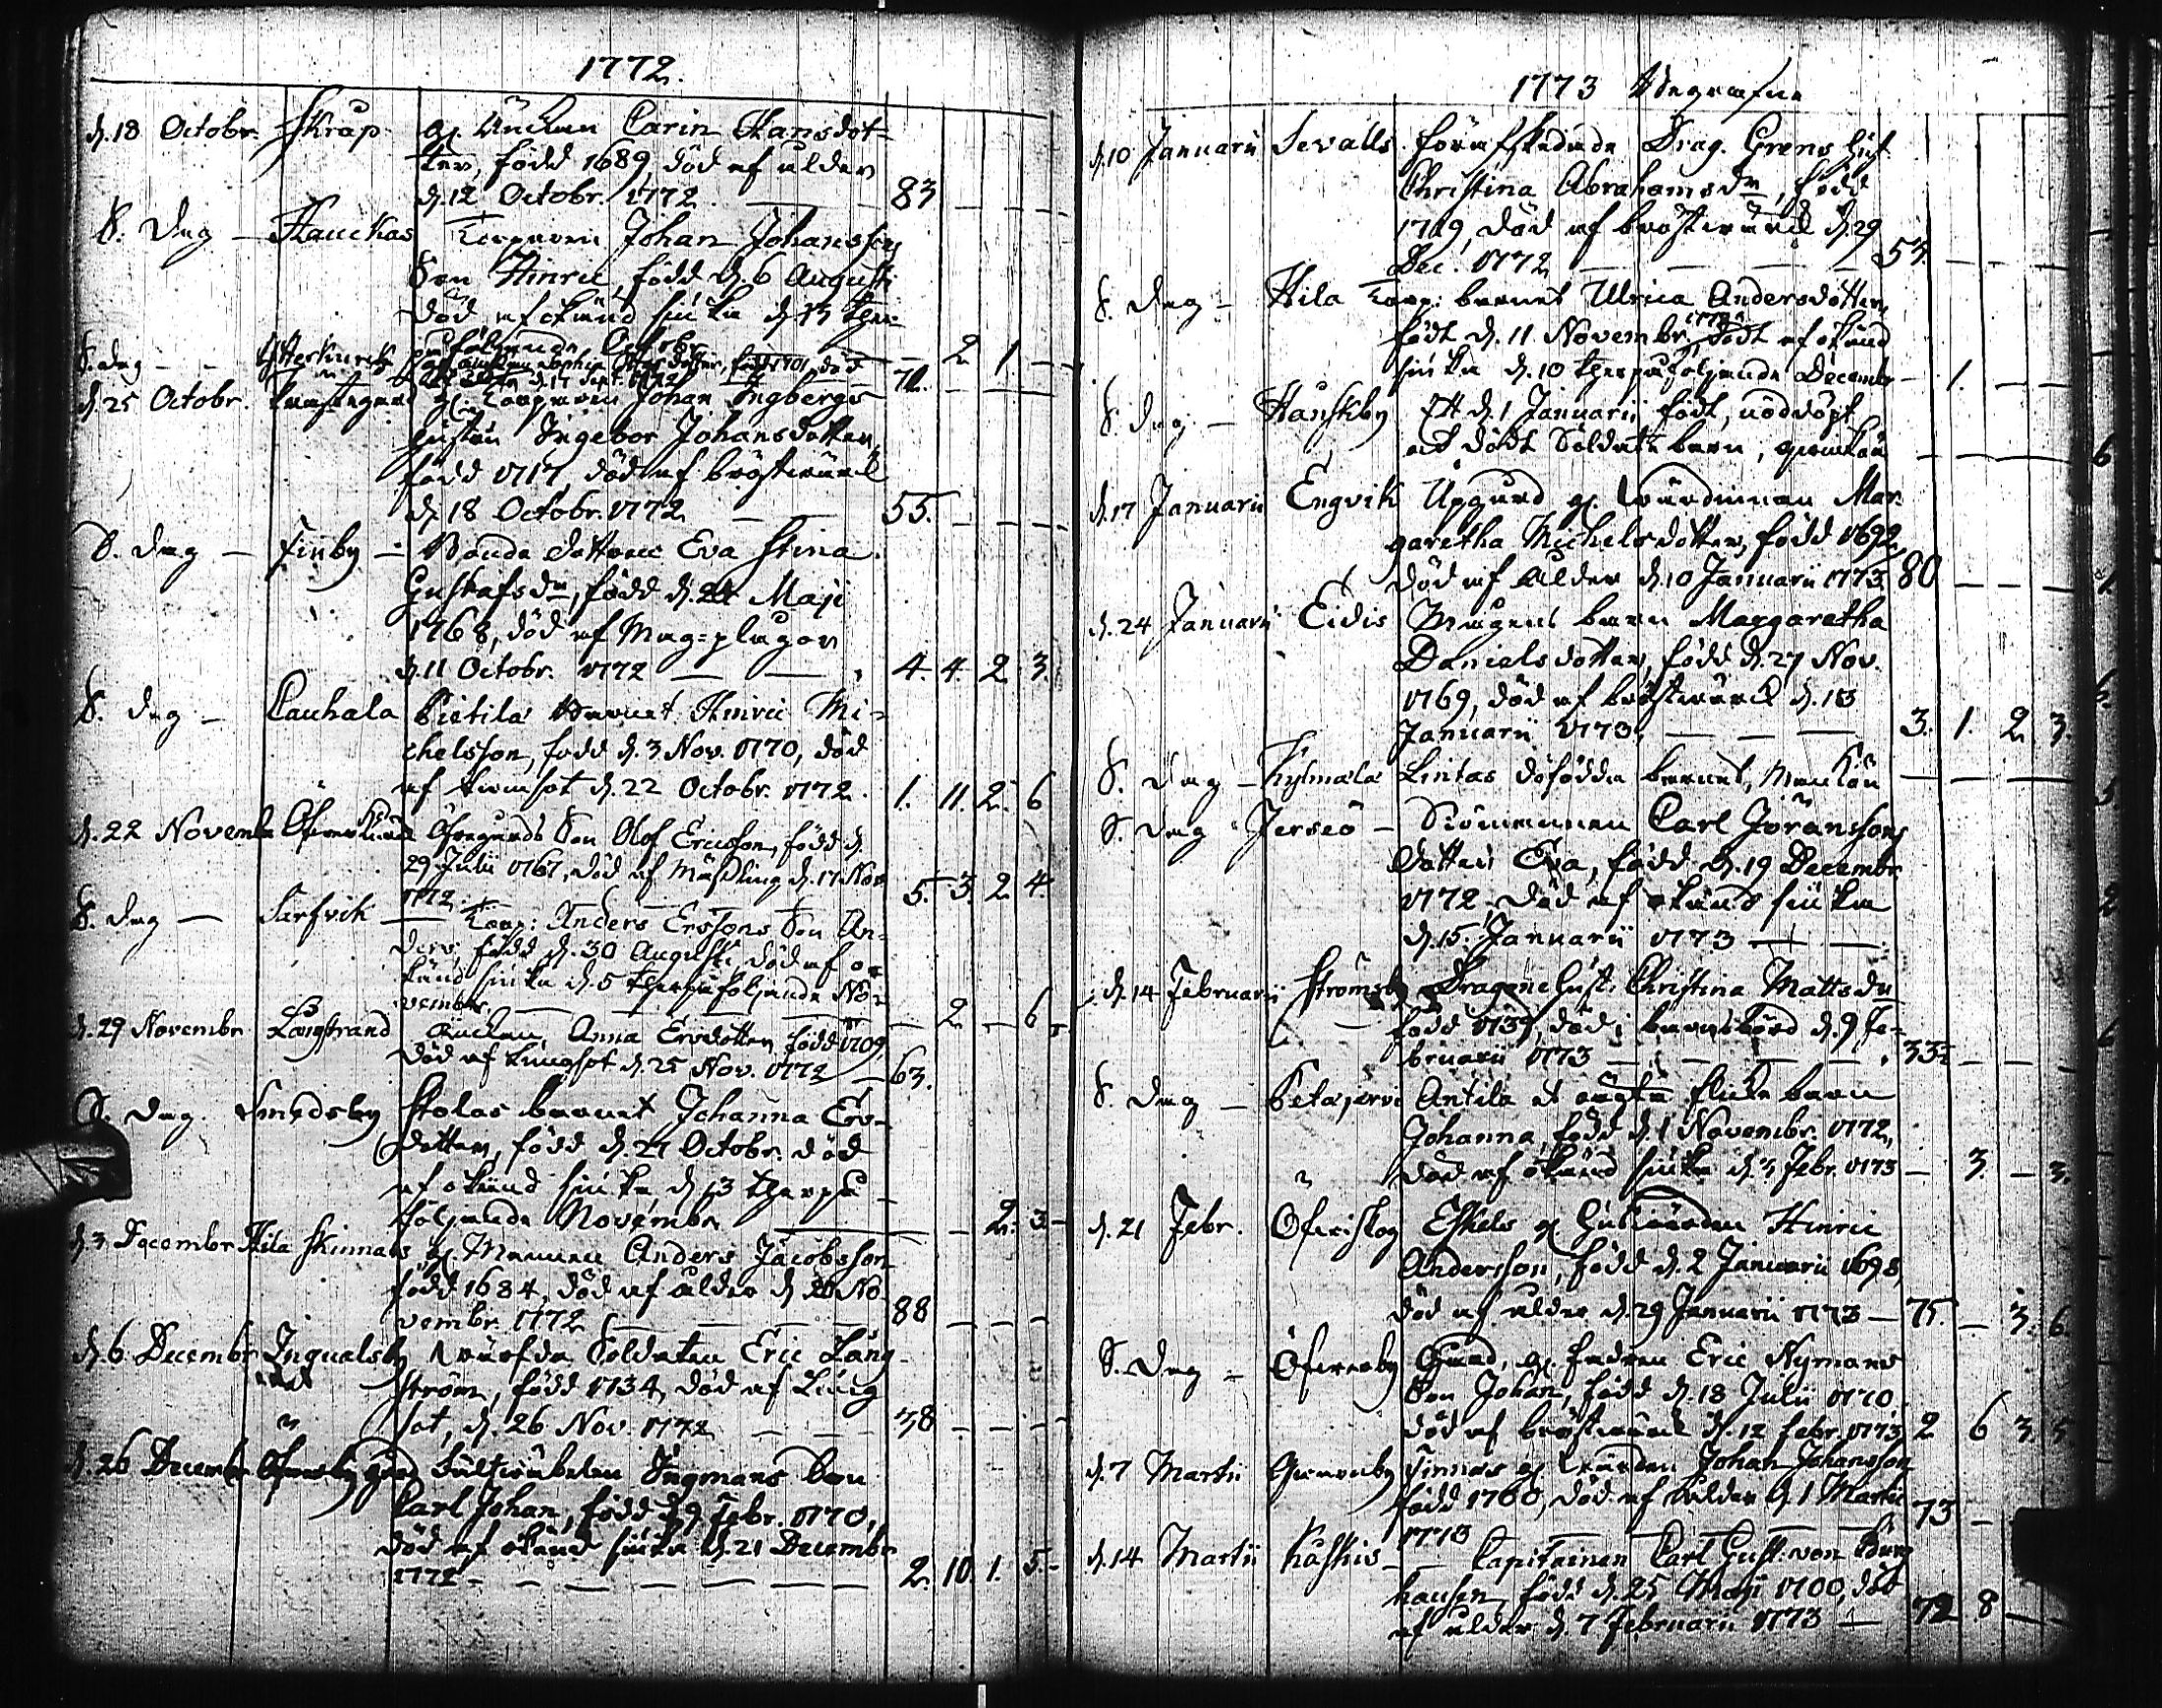 1772.
d. 18 Octobr. Skrap gl. Änckan Carin Hansdot-
ter, född 1689, död af ålder
d. 12 Octobr. 1772 — 83 — — —
S. Dag — Hauckas Torparen Johan Johanssons
Son Hinric, född d. 6 Augusti
död af okänd siuka d. 13 ther-
uppåföljande Octobr. — 2 1 —
S. dag — död
d. 17 Sept. 1772 71.
d. 25 Octobr. gl. Torparen Johan Ingbergs
hustru Ingebor Johansdotter,
född 1717, död af bröstwärck
d. 18 Octobr. 1772 — 55. — — —
S. dag — Finby — Bonde dottren Eva Stina
Gustafsdr, född d. 24 Maji
1768, död af Mag-plågor
d. 11 Octobr. 1772 — — 4. 4. 2. 3.
S. dag — Lauhala Pietilä Barnet Hinric Mi-
chelsson, född d. 3 Nov. 1770, död
af twinsot d. 22 Octobr. 1772. 1. 11. 2. 6
d. 22 Novembr Son Olof Ericsson, född d.
29 Julii 1767, död af Mässling d. 17 Nov.
1772. 5. 3. 2. 4.
S. dag — Sarfvik — Torp: Anders Erssons Son An-
ders, född d. 30 Augusti, död af o-
känd siuka d. 5 therpåföljande No-
vember — — 2 — 6
d. 29 Novembr Långstrand Änckan Anna Ersdotter född 1709
död af lungsot d. 25 Nov. 1772 — 63.
S. dag. Smedsby Stolas barnet Johanna Ers-
dotter, född d. 21 Octobr. död
af okänd siuka, d. 13 therpå-
följande Novembr — — 2. 3.
d. 3 Decembr Hila Skinnars gl. Mannen Anders Jacobsson
född 1684, död af ålder d. 20 No-
vembr. 1772 — 88 — — —
d. 6 Decembr Ingvalsby Soldaten Eric Lång-
ström, född 1734, död af Lung-
sot, d. 26 Nov. 1772 — 38 — — —
d. 26 Decembr Öfwerby gård Ingmans Son
Carl Johan, född d. 9 Febr. 1770,
död af okänd siuka d. 21 Decembr
1772 — — — 2. 10. 1. 5.
1773 Begrafne
d. 10 Januarii Sevalls förafskedade Drag. Grens hust
Christina Abrahamsdr, född
1719, död af bröstwärck d. 29
Dec. 1772 — — 53. — — —
S. dag — Hila Torp: barnet Ulrica Andersdotter,
född d. 11 Novembr 1772, dödt af okänd
siuka d. 10 therpåföljande Decembr — 1. — —
S. dag — Hauskby Ett d. 1 Januarii född, nöddöpt
och dödt Soldate barn, qwinkön — — —
d. 17 Januarii Engvik Upgård gl. wärdinnan Mar-
garetha Michelsdotter, född 1692,
död af ålder d. 10 Januarii 1773. 80 — — —
d. 24 Januarii Eidis Mågens barn Margaretha
Danielsdotter, född d. 27 Nov.
1769, död af bröstwärck d. 18
Januarii 1773. — — 3. 1. 2. 3.
S. dag — Kylmälä Lintas dödfödde barnet, Mankön — — —
S. dag Jerseö — Siömannen Carl Jöranssons
dotter Eva, född d. 19 Decembr
1772, död af okänd siuka
d. 15. Januarii 1773 — —
d. 14 Februarii Strömsby Dragone hust. Christina Mattsdr
född 1739, död i barnsbörd d. 9 Fe-
bruarii 1773 — — 33. — — —
S. dag — Petajärvi Antila et oägta flicke barn
Johanna, född d. 1 Novembr. 1772,
död af okänd siuka d. 3 Febr. 1773 — 3. — 3.
d. 21 Febr. Öfwerskog Eskils gl. Huswärden Hinric
Andersson, född d. 2 Januarii 1698,
död af ålder d. 29 Januarii 1773 — 75. — 3. 6.
S. Dag — Öfwerby Gård, gl. Eric Nymans
Son Johan, född d. 18 Julii 1770.
död af bröstwärck d. 12 febr. 1773 2 6 3. 5.
d. 7 Martii Qwarnby Finnas gl. wärden Johan Johansson
född 1700, död af ålder d. 1 Martii
1773 — — 73 —
d. 14 Martii Käskis — Capitainen Carl Gust. von Burg
hausen, född d. 25 Maji 1700, död
af ålder d. 7 Februarii 1773 — 72 8 —